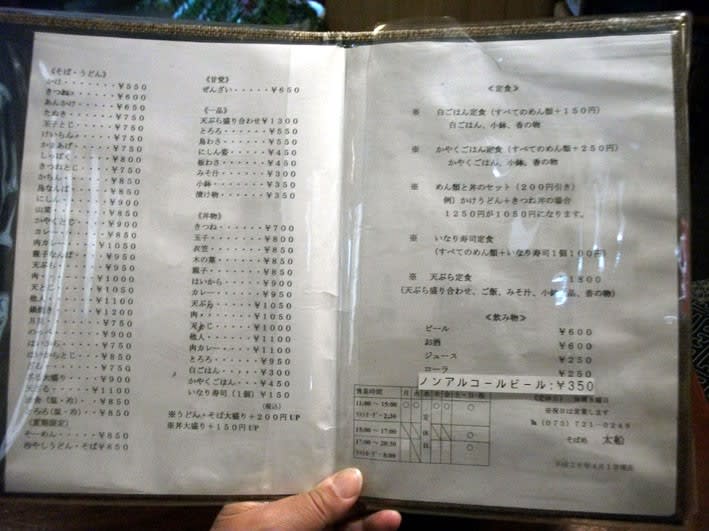 《そば・うどん》
かけ・・・・・・¥550
きつね・・・・・¥600
あんかけ・・・・¥650
たぬき・・・・・¥750
玉子とじ・・・・¥750
けいらん・・・・¥750
しっぽく・・・・¥800
きつねとじ・・・¥750
鳥なんば・・・・¥850
にしん・・・・・¥950
山菜・・・・・・¥850
かやくとじ・・・¥900
カレー・・・・・¥850
肉カレー・・・・¥1050
親子なんば・・・¥950
天ぷら・・・・・¥950
肉・・・・・・・¥1000
天とじ・・・・・¥1050
他人・・・・・・¥1100
鍋焼き・・・・・¥1200
のっぺ・・・・・¥900
《夏期限定》
そーめん・・・・¥850
冷やしうどん・そば¥850
《甘党》
ぜんざい・・・・・¥650
《一品》
天ぷら盛り合わせ¥1300
とろろ・・・・・¥550
鳥わさ・・・・・¥550
にしん姿・・・・¥450
板わさ・・・・・¥350
みそ汁・・・・・¥300
小鉢・・・・・・¥350
漬け物・・・・・¥350
《丼物》
きつね・・・・・¥700
玉子・・・・・・¥800
衣笠・・・・・・¥850
木の葉・・・・・¥850
親子・・・・・・¥850
はいから・・・・¥850
カレー・・・・・¥950
天ぷら・・・・・¥1050
肉・・・・・・・¥1050
天とじ・・・・・¥1000
他人・・・・・・¥1100
肉カレー・・・・¥1100
とろろ・・・・・¥950
白ごはん・・・・¥300
かやくごはん・・¥450
いなり寿司(1個)¥150
(税込)
※うどん・そば大盛り+200円UP
※丼大盛り+150円UP
《定食》
※ 白ごはん定食(すべてのめん類+150円)
白ごはん、小鉢、香の物
※ かやくごはん定食(すべてのめん類+250円)
かやくごはん、小鉢、香の物
※ めん類と丼のセット(200円引き)
例)かけうどん+きつね丼の場合
1250円が1050円になります。
※ いなり寿司定食
(すべてのめん類+いなり寿司1個100円)
※ 天ぷら定食 1800
(天ぷら盛り合わせ、ご飯、みそ汁、小鉢、香の物)
《飲み物》
ビール ¥600
お酒 ¥600
ジュース ¥250
コーラ ¥250
ノンアルコールビール:¥350
営業時間
11:00~15:00
15:00~17:00
17:00~20:30
定休日
※祝日は営業します
℡(075)-721-0249
そばめ 太船